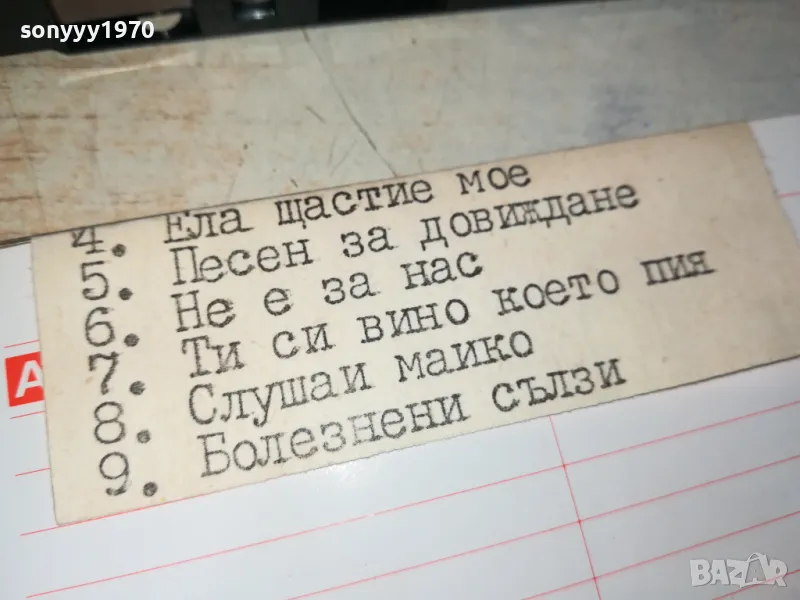 sonyyy1970
4. Ела щастие мое
5. Песен за довиждане
6. Не е за нас
7. Ти си вино което пия
8. Слушаи маико
9. Болезнени сълзи
A
BAZAR